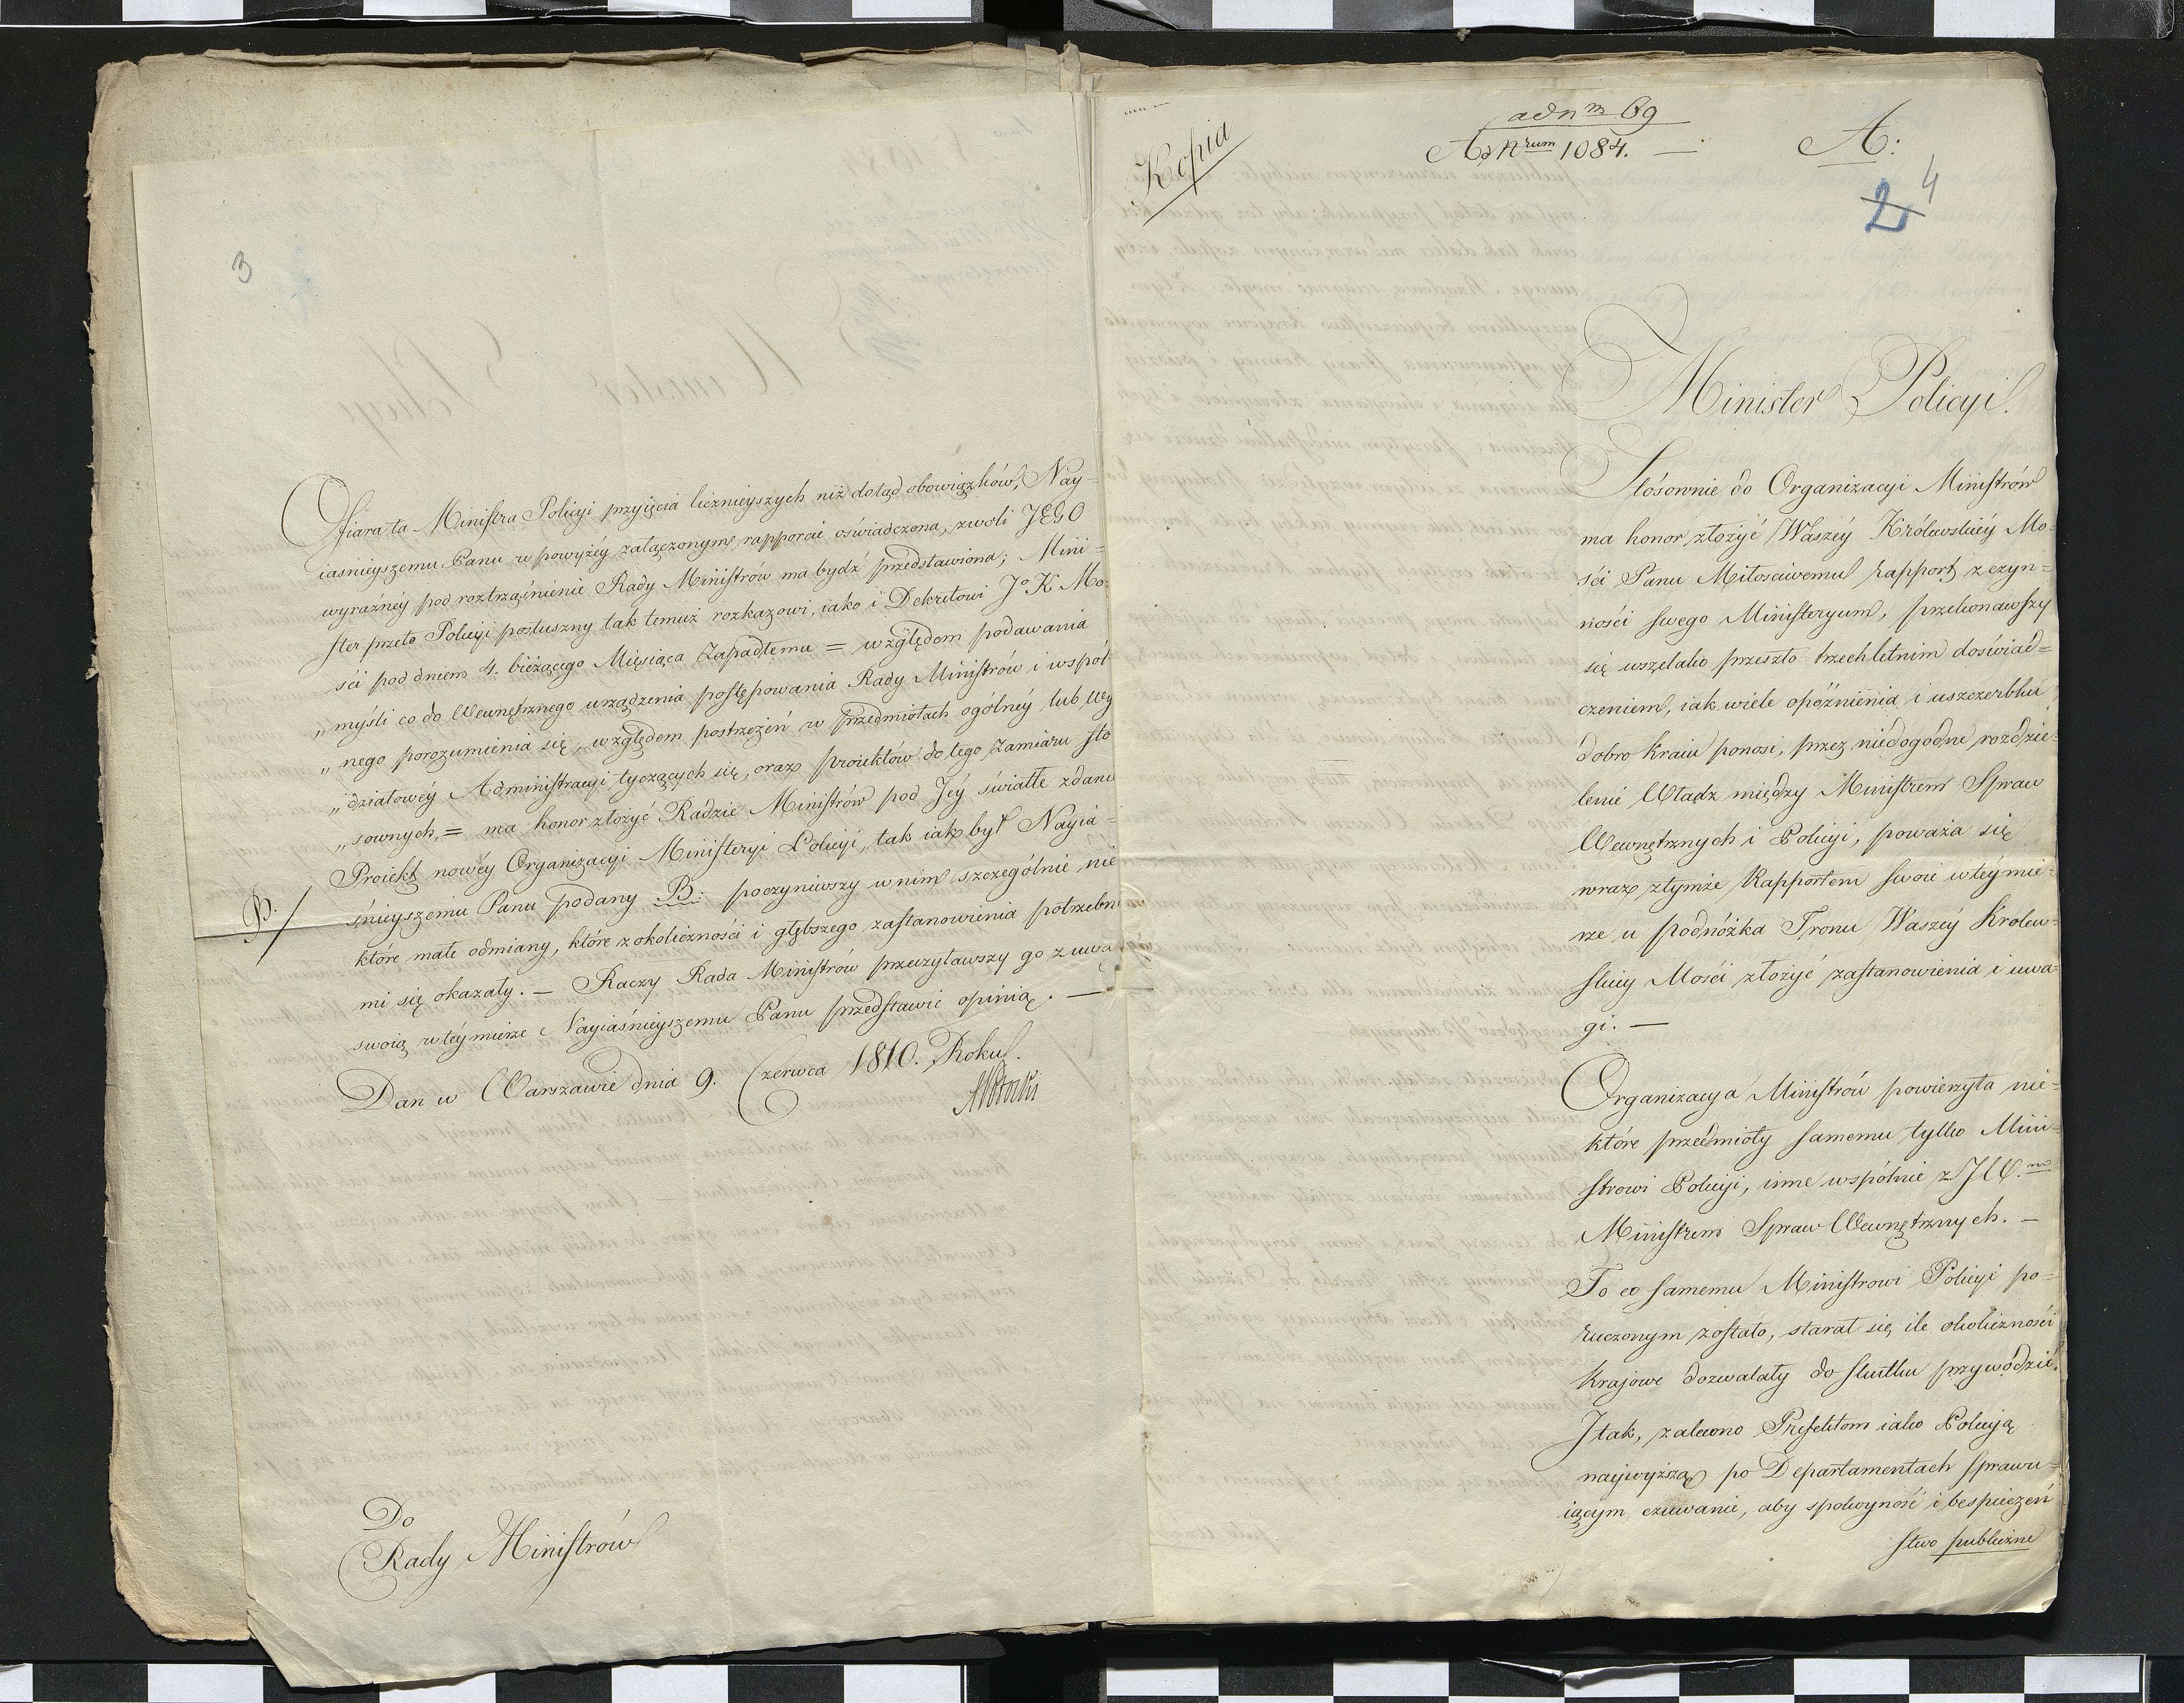 3
Ofiara ta Ministra Policyi przyięcia licznieyszych niż dotąd obowiązków, Nay=
iasnieyszemu Panu w powyżéy załączonym rapporcie oświadczona, z woli JEGO
wyraźnéy pod roztrząśnienie Rady Ministrów ma bydź przedstawiona; Mini=
ster przeto Policyi posłuszny tak temuż rozkazowi, iako i Dekretowi Jo K Mo:
ści pod dniem 4. bieżącego Mięsiąca Zapadłemu = względem podawania
„myśli co do Wewnętrznego urządzenia postępowania Rady Ministrów i wspól-
„nego porozumienia się, względem postrzeżeń w przedmiotach ogólnéy lub wy
„działowéy Administracyi tyczących się, oraz proiektów do tego Zamiaru sto
„sownych, = ma honor złożyć Radzie Ministrów pod Jéy światłe zdanie
Proiekt nowéy Organizacyi Ministeryi Policyi, tak iak był Nayia=
B./
śnieyszemu Panu podany B: poczyniwszy w nim szczególnie nie
które małe odmiany, które z okoliczności i głębszego zastanowienia potrzebne
mi się okazały. — Raczy Rada Ministrów przeczytawszy go z uwa
swoią w téy mierze Nayiaśnieyszemu Panu przedstawić opinią. —
Dan w Warszawie dnia 9. Czerwca 1810. Roku.
APotocki
Do
Rady Ministrów
Kopia
ad nm 69
Ad Nrum 1084. —
A:
2 4
Minister Policyi.
Stósownie do Organizacyi Ministrów
ma honor złożyć Waszéy Królewskiéy Mo
ści Panu Miłościwemu rapport z czyn=
ności swego Ministeryum, przekonawszy
się wszelako przeszło trzechletnim doświad=
czeniem, iak wiele opóźnienia i uszczerbku
dobro kraiu ponosi, przez niedogodne rozdzie=
lenie Władz między Ministrem Spraw
Wewnętrznych i Policyi, poważa się
wraz z tymże Rapportem swoie w téy mie=
rze u podnóżka Tronu Waszéy Krolew=
skiey Mości złożyć zastanowienia i uwa=
gi. —
Organizacya Ministrów powierzyła nie=
które przedmioty samemu tylko Mini=
strowi Policyi, inne wspólnie z JW.m
Ministrem Spraw Wewnętrznych. —
To co samemu Ministrowi Policyi po=
ruczonym zostało, starał się ile okoliczności
Krajowe dozwalały do skutku przywódzić.
I tak, zalecono Prefektom iako Policyą
naywyższą po Departamentach sprawu=
iącym czuwanie, aby spokoyność i bespieczeń
stwo publiczne